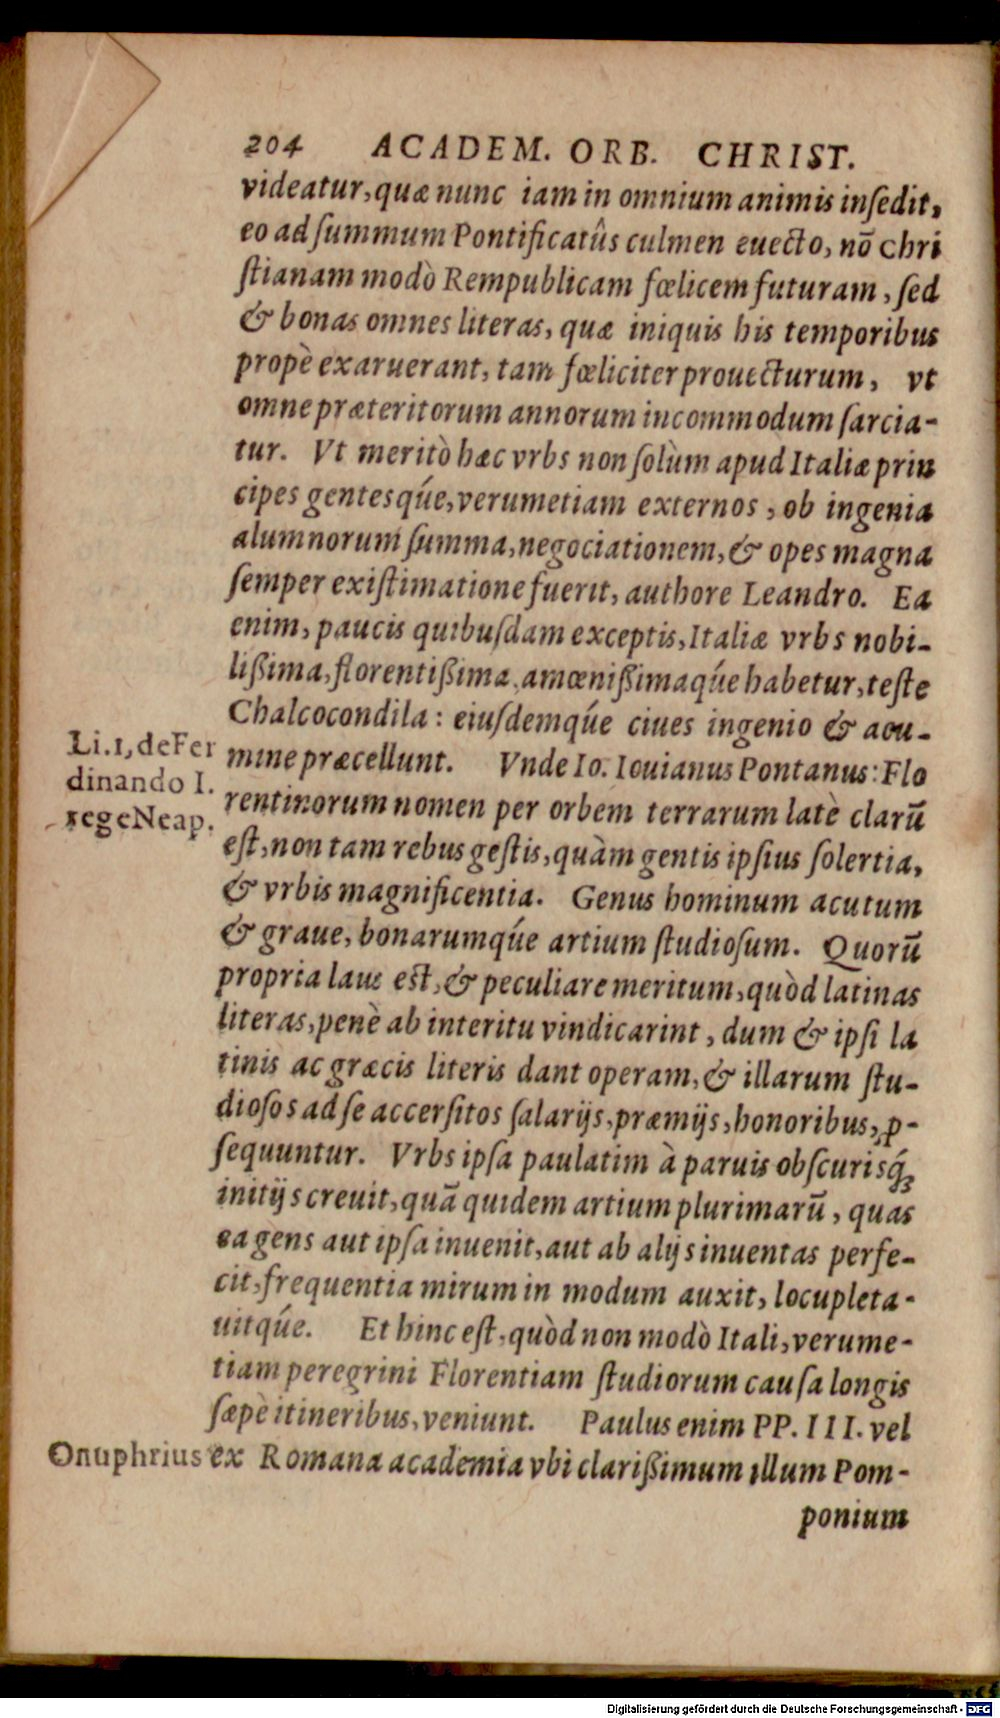 204 ACADEM. ORB. CHRIST.
videatur, quæ nunc iam in omnium animis inſedit,
eo ad ſummum Pontificatûs culmen euecto, nō Chri
ſtianam modò Rempublicam fœlicem futuram, ſed
& bonas omnes literas, quæ iniquis his temporibus
propè exaruerant, tam fœliciter prouecturum, vt
omne præteritorum annorum incommodum ſarcia-
tur. Vt meritò hæc vrbs non ſolùm apud Italiæ prin
cipes gentesqúe, verumetiam externos, ob ingenia
alumnorum ſumma, negociationem, & opes magna
ſemper exiſtimatione fuerit, authore Leandro. Ea
enim, paucis quibuſdam exceptis, Italiæ vrbs nobi-
lißima, florentißima, amœnißimaqúe habetur, teſte
Chalcocondila: eiuſdemqúe ciues ingenio & acu-
mine præcellunt. Vnde Io. Iouianus Pontanus: Flo
Li.1, de Fer
dinando I.
rege Neap.
rentinorum nomen per orbem terrarum latè clarū
eſt, non tam rebus geſtis, quàm gentis ipſius ſolertia,
& vrbis magnificentia. Genus hominum acutum
& graue, bonarumqúe artium ſtudioſum. Quorū
propria laus eſt, & peculiare meritum, quòd latinas
literas, penè ab interitu vindicarint, dum & ipſi la
tinis ac græcis literis dant operam, & illarum ſtu-
dioſos ad ſe accerſitos ſalarijs, præmijs, honoribus, ꝑ-
ſequuntur. Vrbs ipſa paulatim à paruis obſcurisq́ꝫ
initijs creuit, quā quidem artium plurimarū, quas
ea gens aut ipſa inuenit, aut ab alijs inuentas perfe-
cit, frequentia mirum in modum auxit, locupleta-
uitqúe. Et hinc eſt, quòd non modò Itali, verume-
tiam peregrini Florentiam ſtudiorum cauſa longis
ſæpè itineribus, veniunt. Paulus enim PP. III. vel
Onuphrius
ex Romana academia vbi clarißimum illum Pom-
ponium
Digitalisierung gefördert durch die Deutsche Forschungsgemeinschaft - DFG